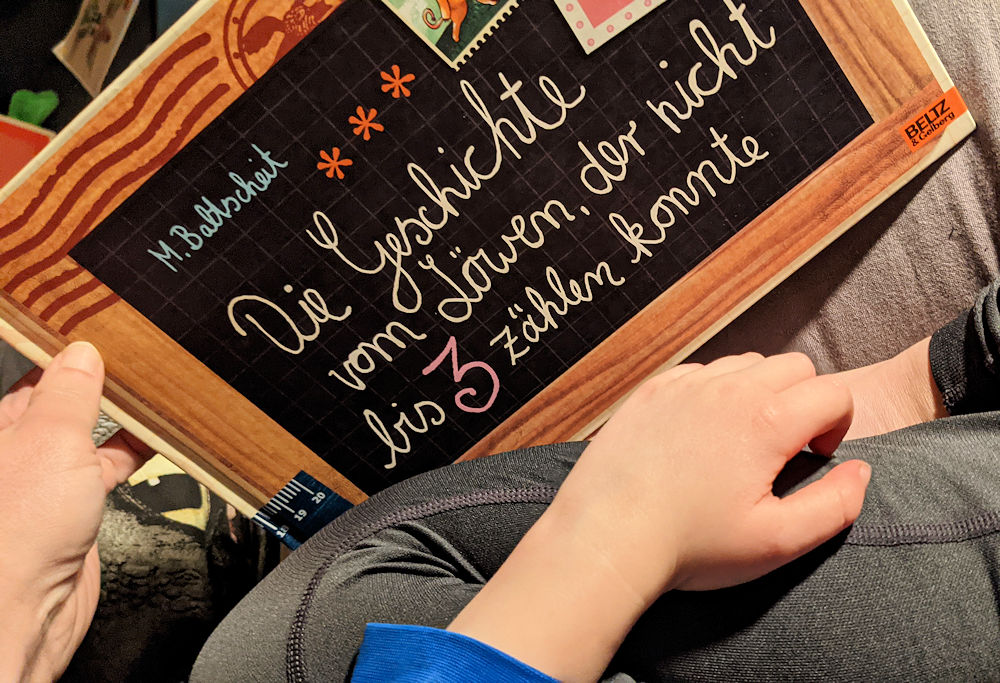 M. Baltscheit
* * *
Die Geschichte
vom Löwen, der nicht
bis 3 zählen konnte
BELTZ
& Gelberg
18 19 20